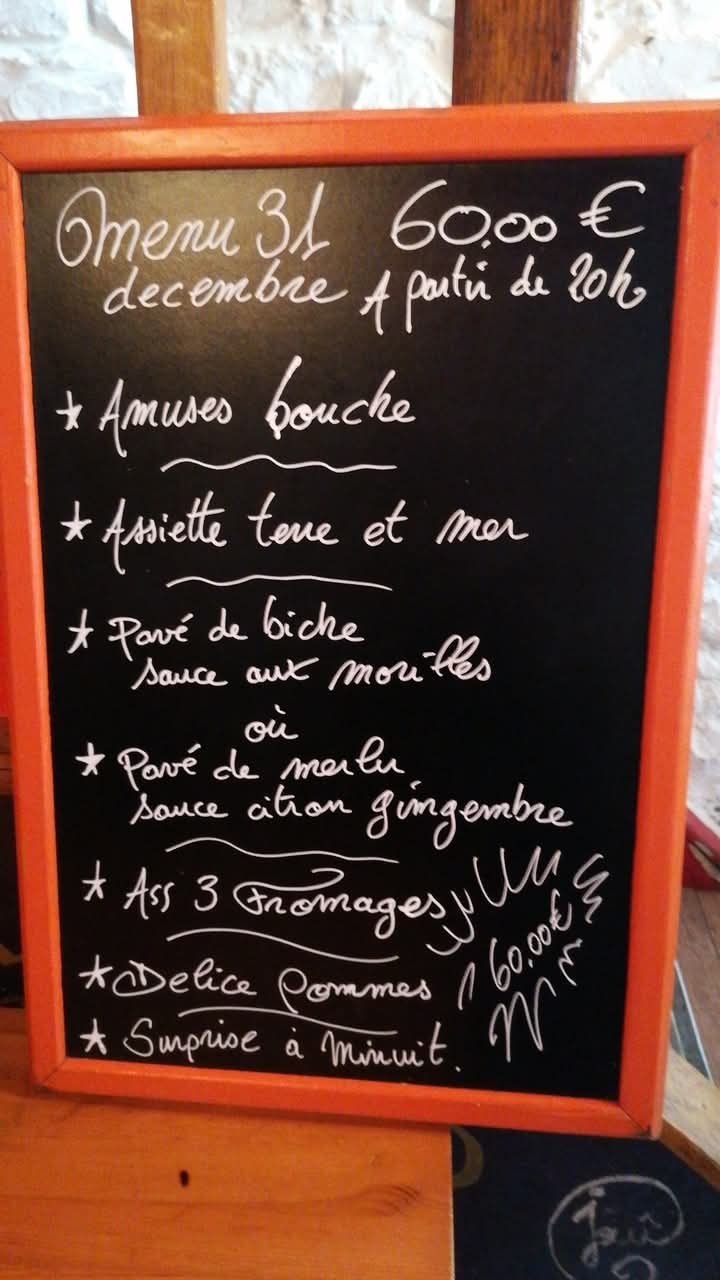 menu 31 60.00 €
decembre A partir de 20h
* Amuses bouche
* Assiette terre et mer
* Pavé de biche
sauce aux morilles
où
* Pavé de merlu
sauce citron gingembre
* Ass 3 Fromages
60.00€
* Delice Pommes
* Surprise à Minuit.